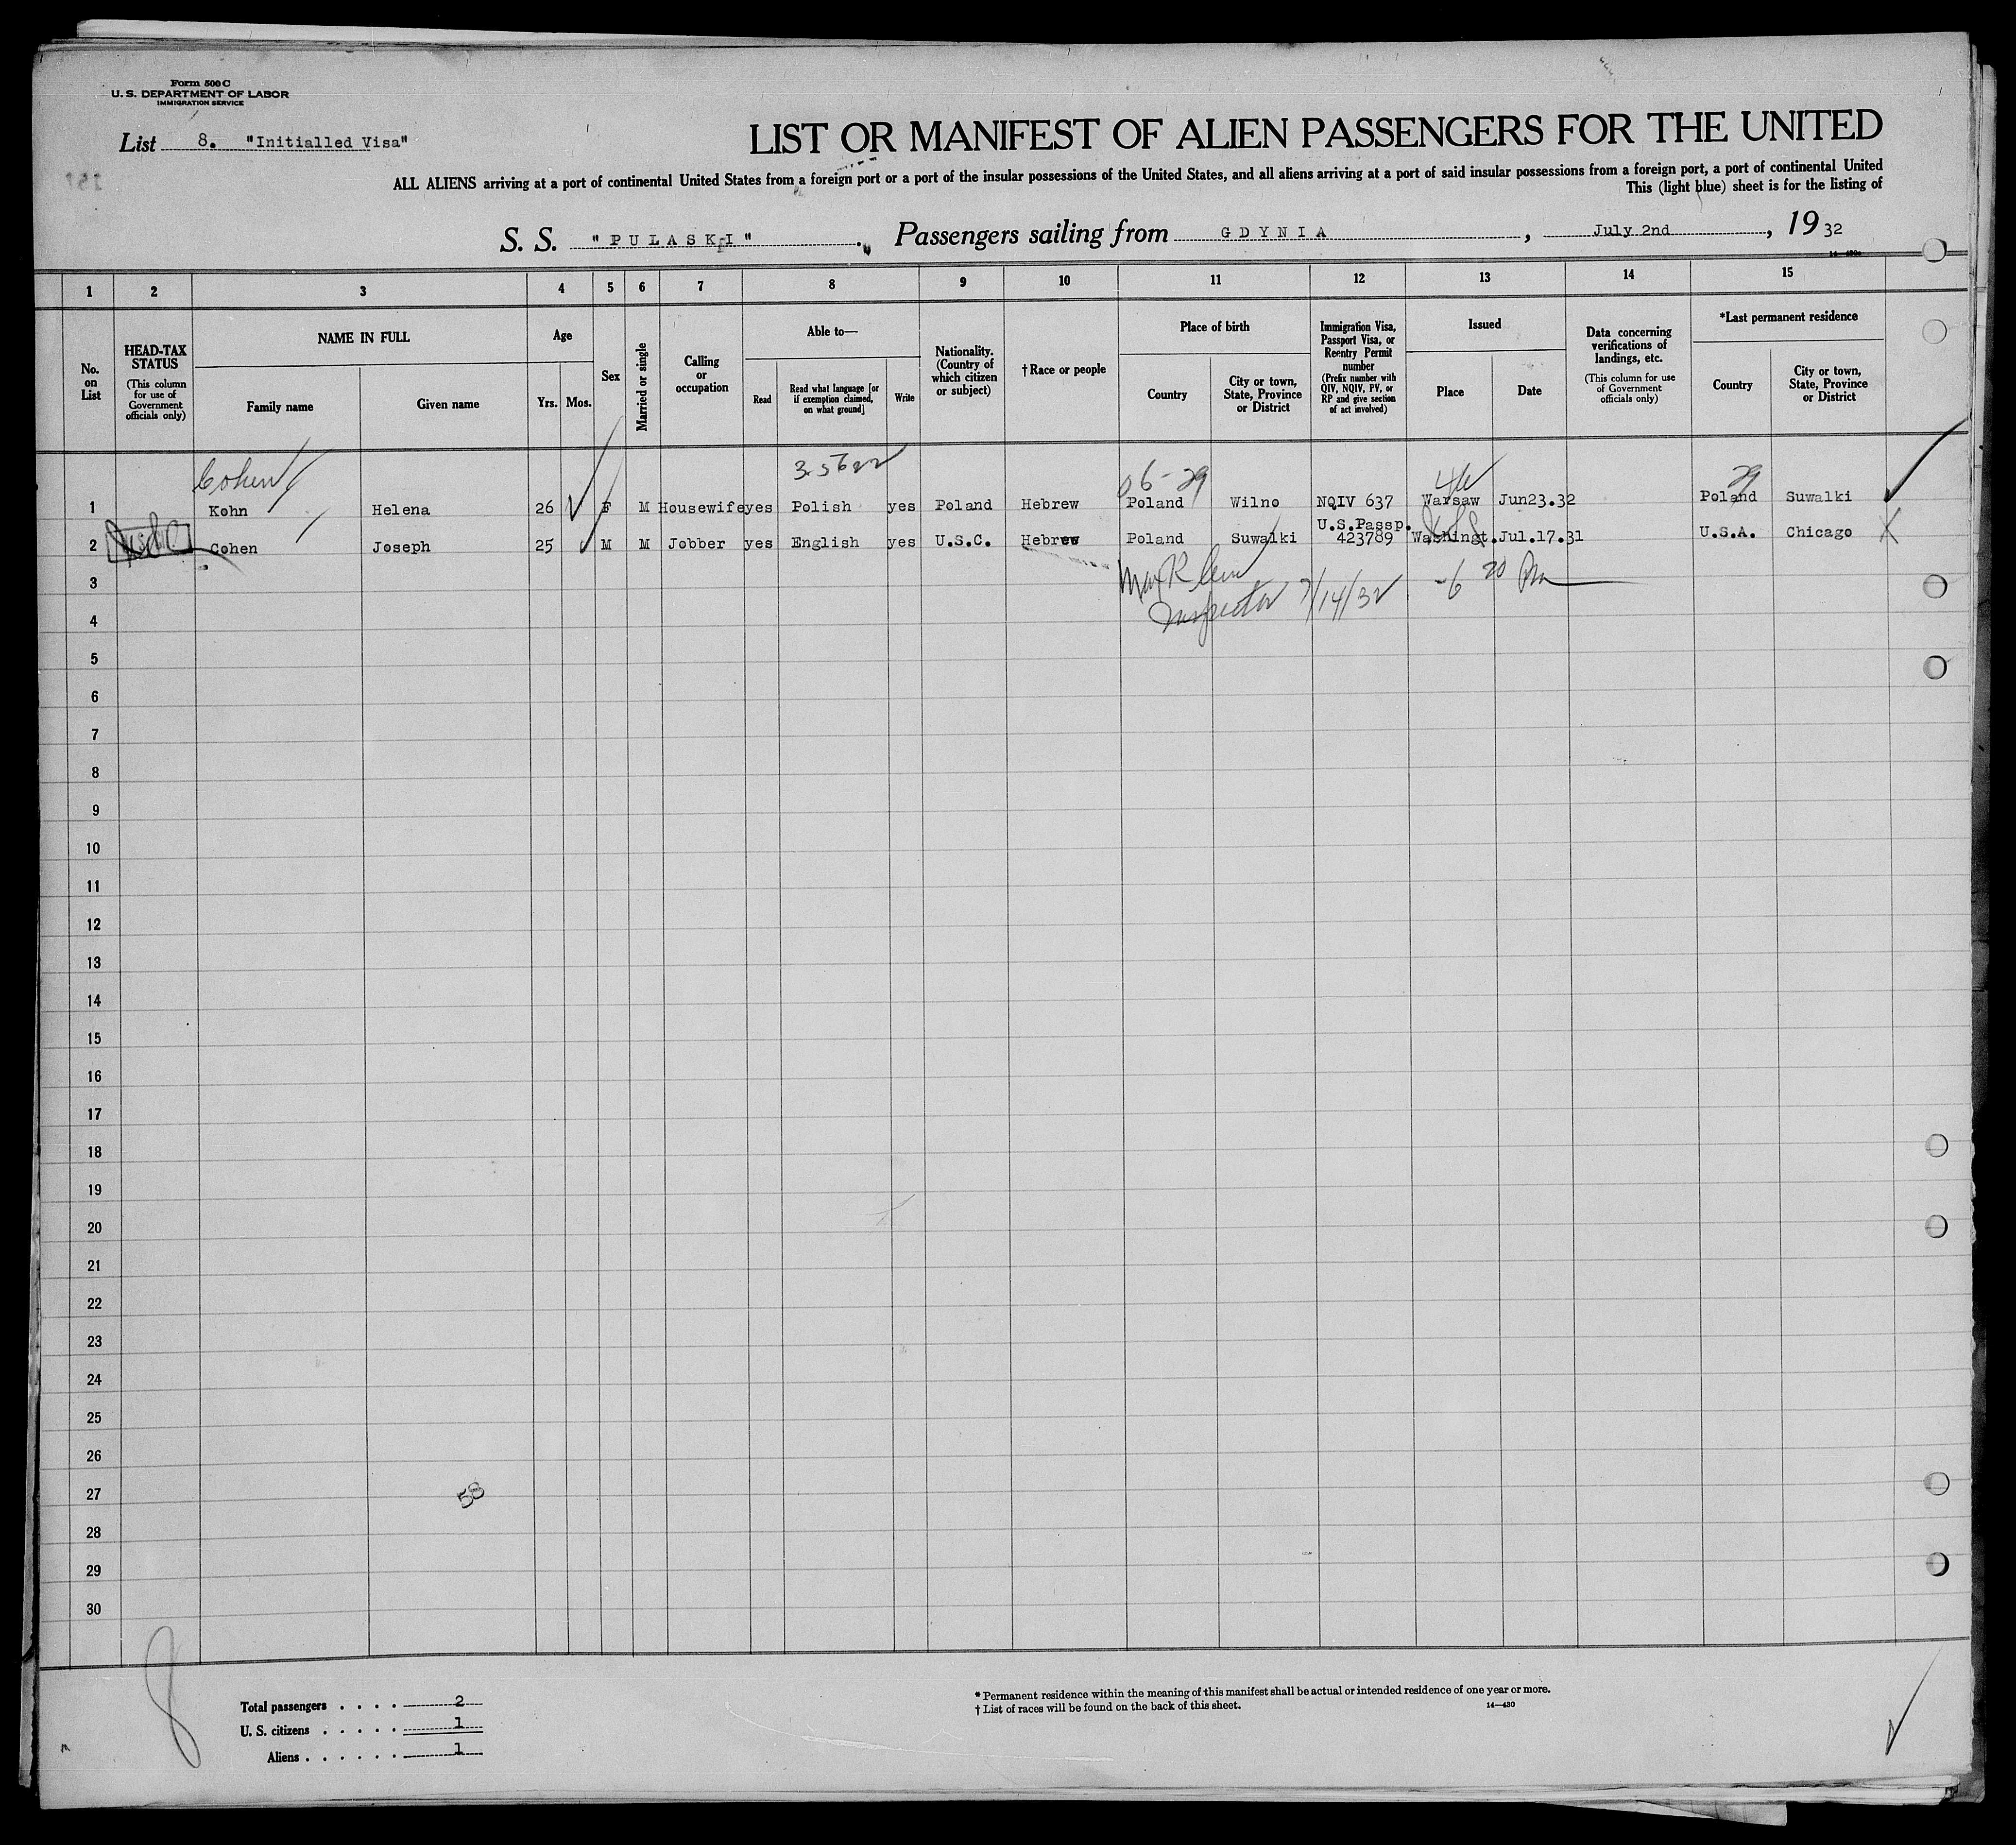 Form 500 C
U. S. DEPARTMENT OF LABOR
IMMIGRATION SERVICE
List 8. "Initialled Visa"
LIST OR MANIFEST OF ALIEN PASSENGERS FOR THE UNITED
ALL ALIENS arriving at a port of continental United States from a foreign port or a port of the insular possessions of the United States, and all aliens arriving at a port of said insular possessions from a foreign port, a port of continental United
This (light blue) sheet is for the listing of
S. S. "PULASKI" Passengers sailing from GDYNIA, July 2nd, 19 32
1 2 3 4 5 6 7 8 9 10 11 12 13 14 15
No. on List
HEAD-TAX STATUS
(This column for use of Government officials only)
NAME IN FULL
Family name Given name
Age
Yrs. Mos.
Sex
Married or single
Calling or occupation
Able to—
Read
Read what language [or if exemption claimed, on what ground]
Write
Nationality. (Country of which citizen or subject)
† Race or people
Place of birth
Country
City or town, State, Province or District
Immigration Visa, Passport Visa, or Reentry Permit number
(Prefix number with QIV, NQIV, PV, or RP and give section of act involved)
Issued
Place Date
Data concerning verifications of landings, etc.
(This column for use of Government officials only)
*Last permanent residence
Country
City or town, State, Province or District
Cohen 06-29 29
1 Kohn Helena 26 F M Housewife yes Polish yes Poland Hebrew Poland Wilno NQIV 637 Warsaw Jun23.32 Poland Suwalki
U.S.Passp.
2 Cohen Joseph 25 M M Jobber yes English yes U.S.C. Hebrew Poland Suwalki 423789 Washingt. Jul.17.31 U.S.A. Chicago X
3
Inspector 7/14/32
4
5
6
7
8
9
10
11
12
13
14
15
16
17
18
19
20
21
22
23
24
25
26
27
58
28
29
30
8
Total passengers . . . . 2
U. S. citizens . . . . . 1
Aliens . . . . . . 1
* Permanent residence within the meaning of this manifest shall be actual or intended residence of one year or more.
† List of races will be found on the back of this sheet.
14—430